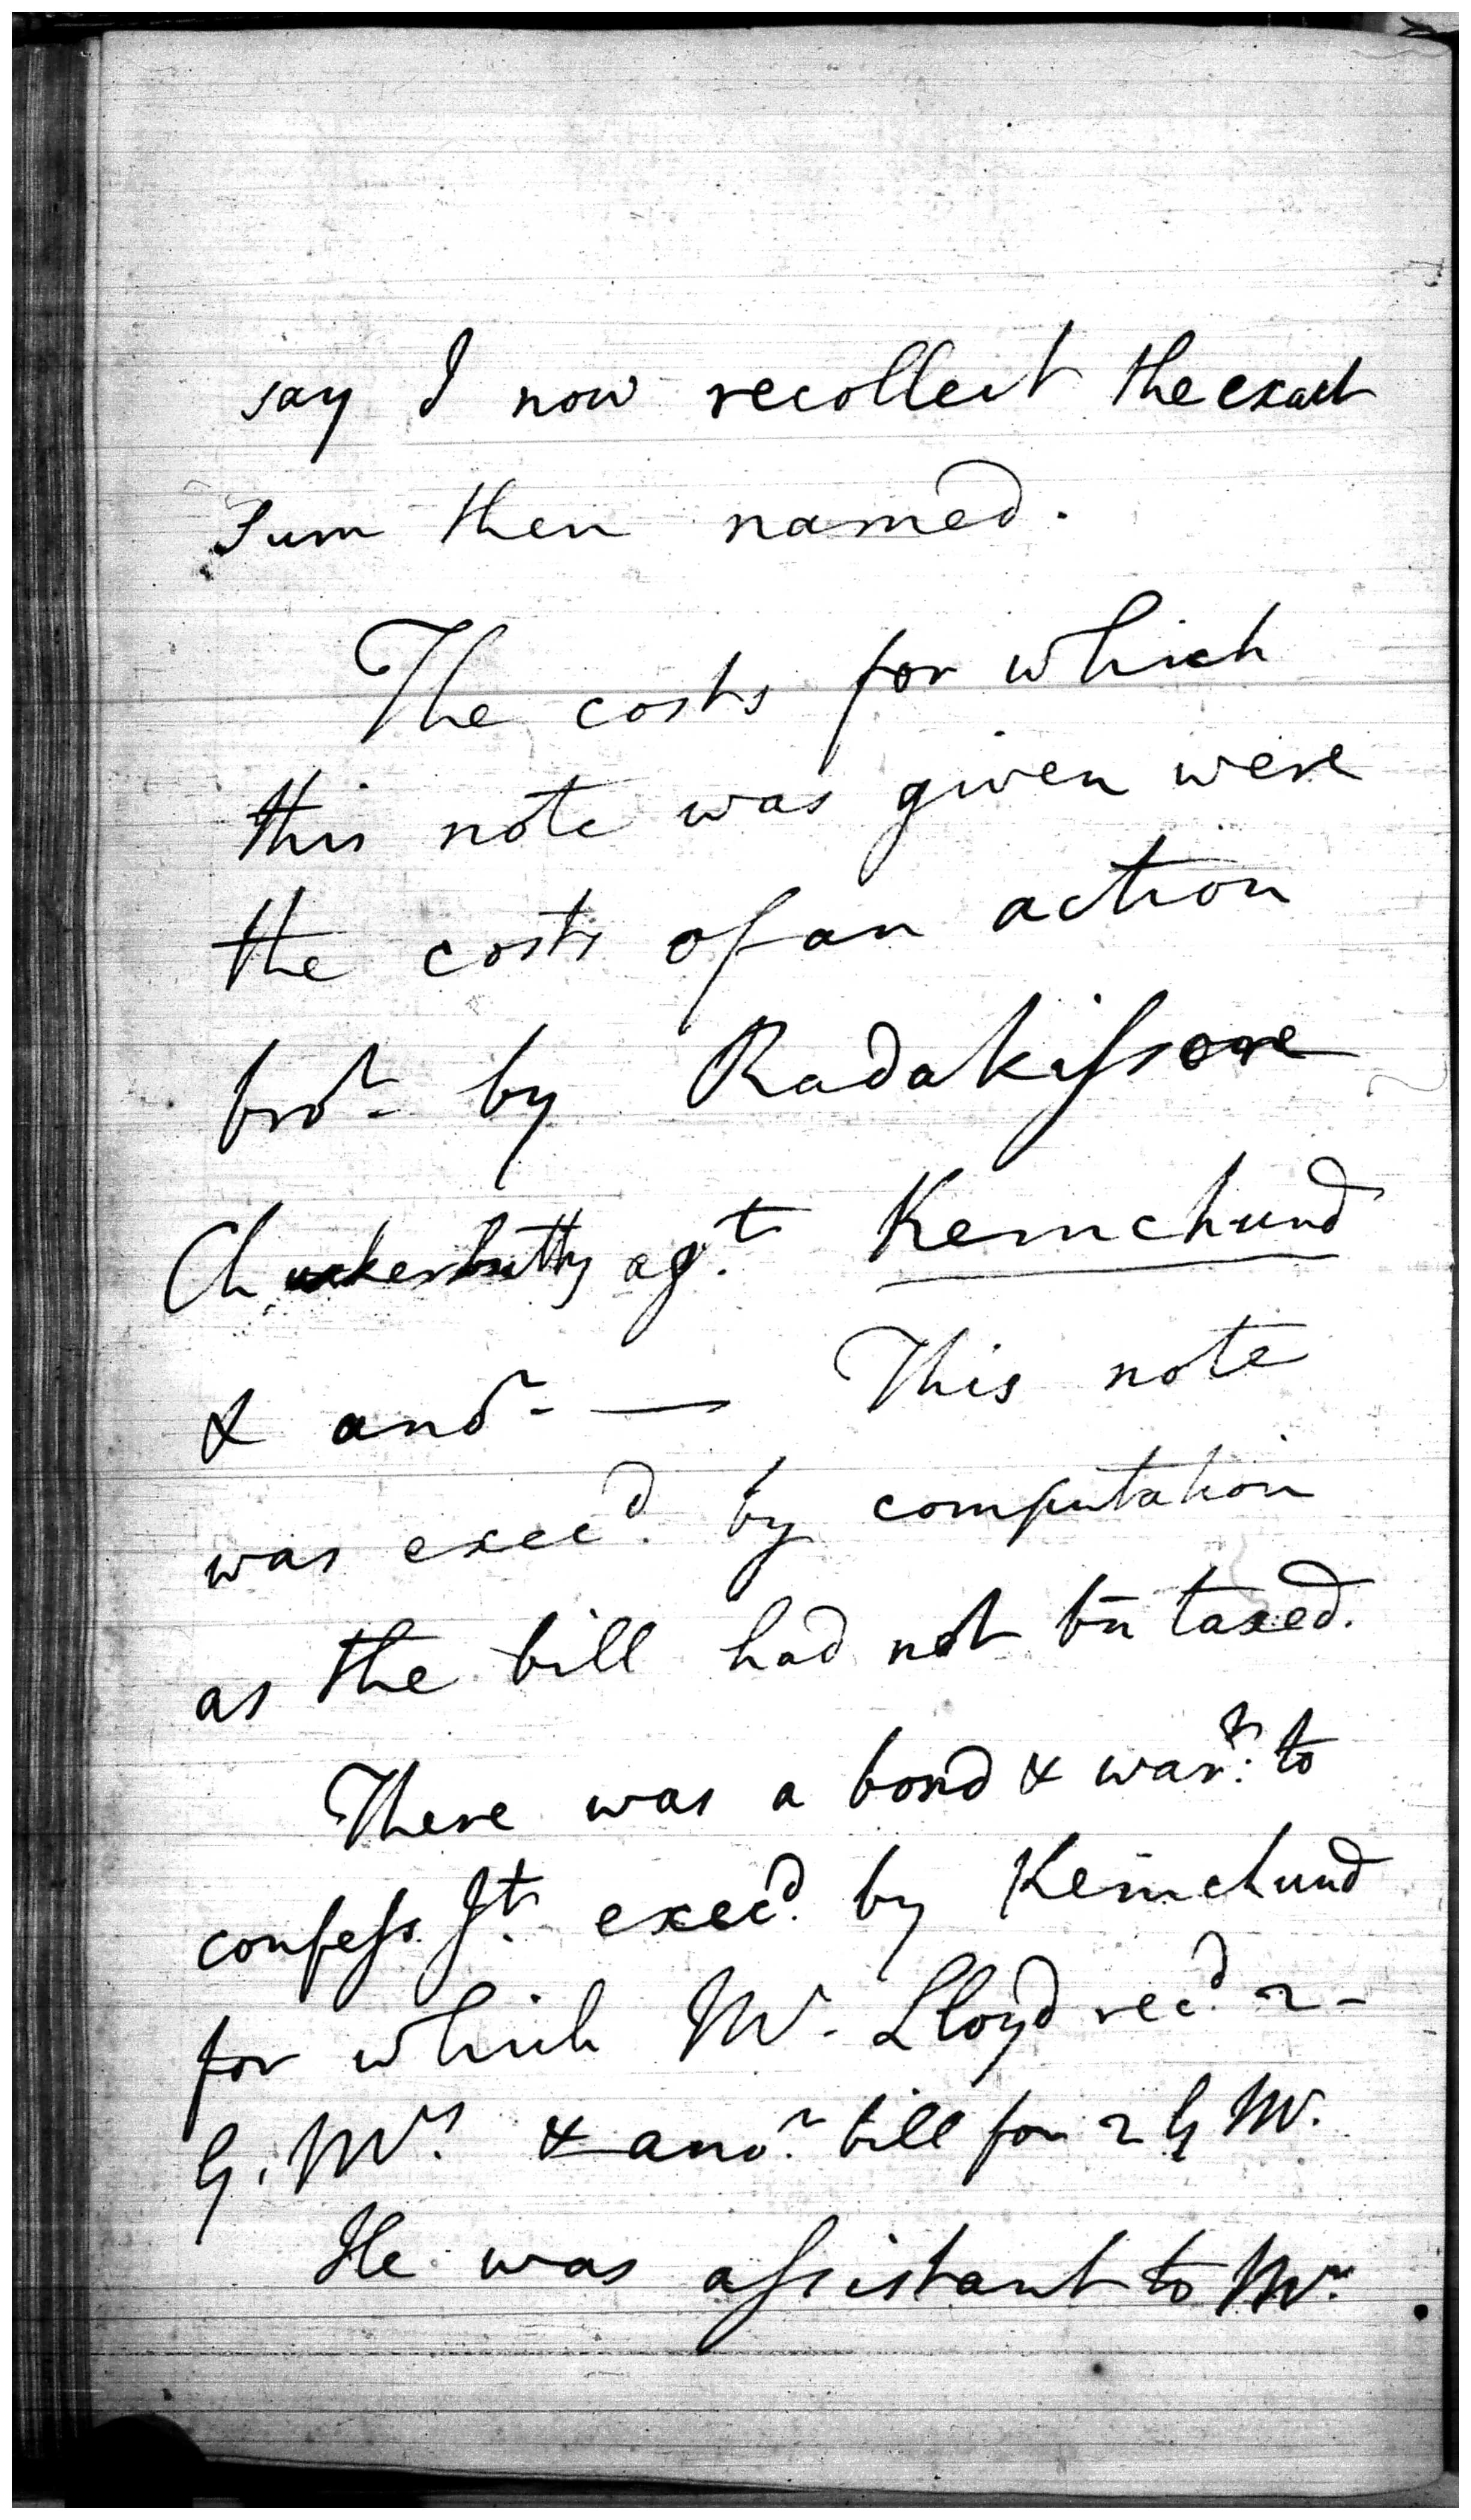 say I now recollect the exact
Sum then named.
The costs for which
this note was given were
the costs of an action
bro.t by Radakissore
Chuckerbutty ag.t Kemchund
& ano.r — This note
was exec.d by computation
as the bill had not bn taxed.
There was a bond & warr.t to
confess J.t exec.d by Kemchund
for which Mr. Lloyd rec.d 2
G. Mrs. & ano.r bill for 2 G Mr.
He was assistant to Mr.